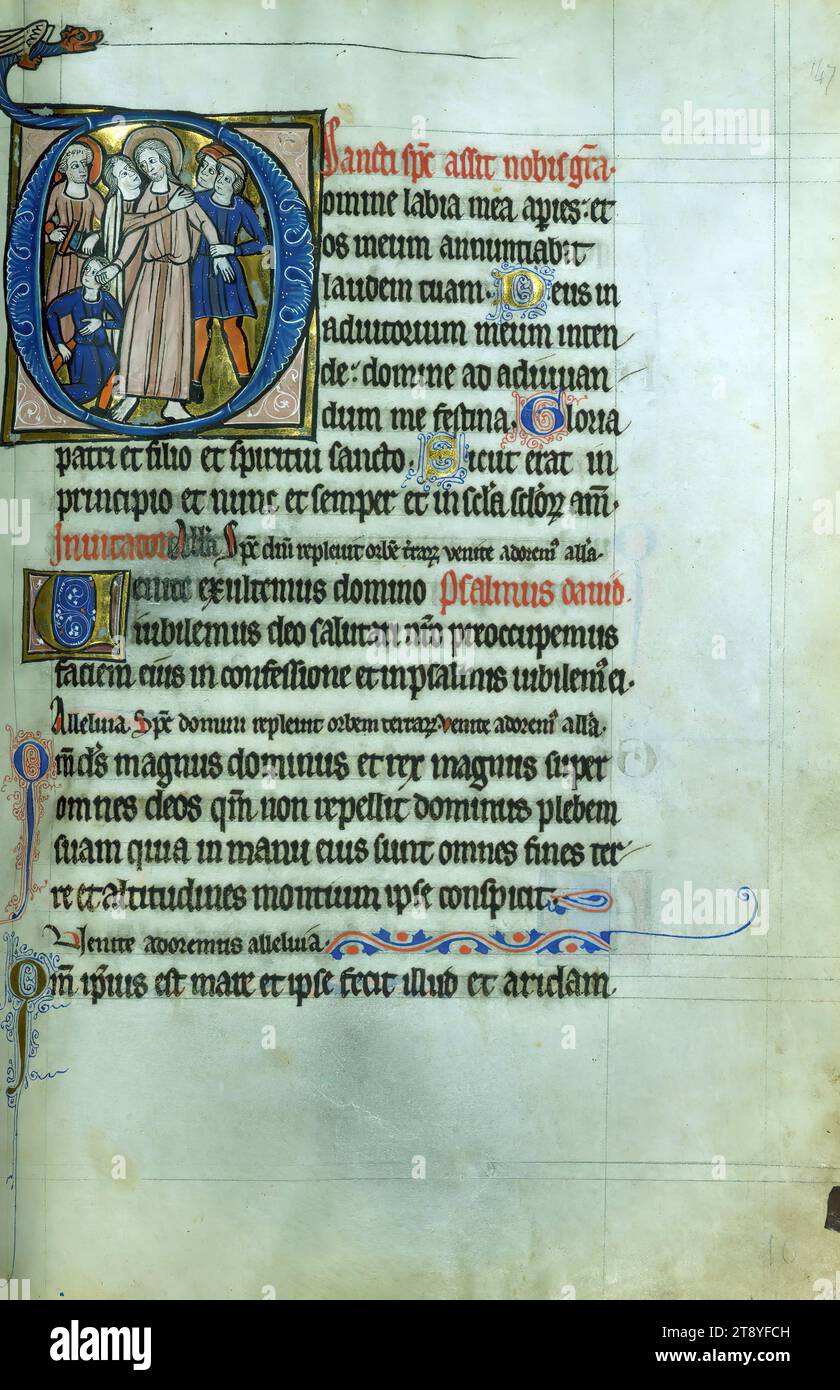 147
Sancti spc assit nobis gra.
Domine labia mea apies: et
os meum annuntiabit
laudem tuam. Deus in
adiutorium meum inten
de: domine ad adiuuan
dum me festina. Gloria
patri et filio et spiritui sancto. Sicut erat in
principio et nunc et semper et in scla sclorz am.
Inuitator Alla Spc dni repleuit orbe trarz venite adorem' alla
Uenite exultemus domino Psalmus dauid.
iubilemus deo salutari nro preoccupemus
faciem eius in confessione et in psalmis iubilem' ei.
Alleluia. Spc domini repleuit orbem terrarz venite adorem' alla.
Qm ds magnus dominus et rex magnus super
omnes deos qm non repellit dominus plebem
suam quia in manu eius sunt omnes fines ter
re et altitudines montium ipse conspicit.
Uenite adoremus alleluia.
Qm ipius est mare et ipse fecit illud et aridam
alamy
Image ID: 2T8YFCH
www.alamy.com